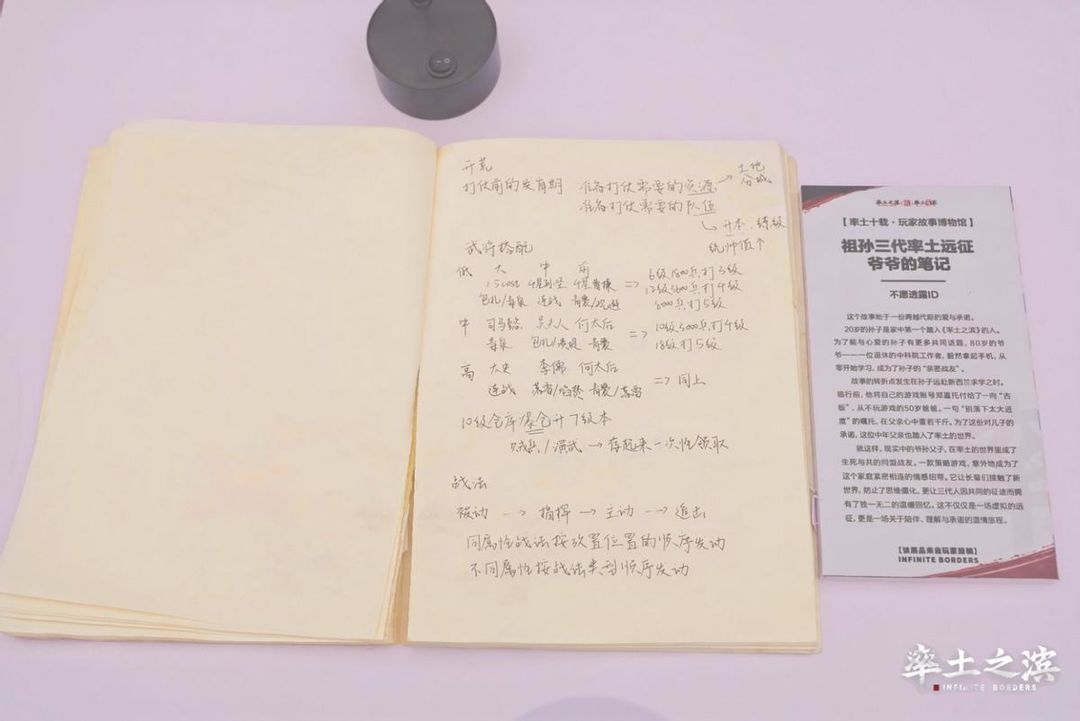 开荒
打仗前的发育期 准备打仗需要的资源 → 土地 分城
准备打仗需要的队伍
↳ 升本、练级
统帅值个
武将搭配
低 大 中 前
包扎/ 连战
=> 6级1800兵打3级
12级3600兵打4级
8000兵打5级
中 司马懿 吴夫人 何太后
包扎/
=> 10级5000兵打4级
18级打5级
高 大史 李儒 何太后
连战
=> 同上
10级仓库爆仓升7级本
贼兵/演武 → 存起来一次性领取
战法
被动 → 指挥 → 主动 → 追击
同属性战法按放置位置的顺序发动
不同属性按战法类别顺序发动
率土之滨
【率土十载·玩家故事博物馆】
祖孙三代率土远征
爷爷的笔记
不愿透露ID
这个故事始于一份跨越代际的爱与承诺。
20岁的孙子是家中第一个踏入《率土之滨》的人。
为了能与心爱的孙子有更多共同话题，80岁的爷
爷——一位退休的中科院工作者，毅然拿起手机，从
零开始学习，成为了孙子的“亲密战友”。
故事的转折点发生在孙子远赴新西兰求学之时。
临行前，他将自己的游戏账号郑重托付给了一向“古
板”、从不玩游戏的50岁爸爸。一句“别落下太大进
度”的嘱托，在父亲心中重若千斤。为了这份对儿子的
承诺，这位中年父亲也踏入了率土的世界。
就这样，现实中的爷孙父子，在率土的世界里成了
生死与共的同盟战友。一款策略游戏，意外地成为了
这个家庭紧密相连的情感纽带。它让长辈们接触了新
世界，防止了思维僵化，更让三代人因共同的征途而拥
有了独一无二的温暖回忆。这不仅仅是一场虚拟的远
征，更是一场关于陪伴、理解与承诺的温情旅程。
【该展品来自玩家投稿】
INFINITE BORDERS
率土之滨
INFINITE BORDERS